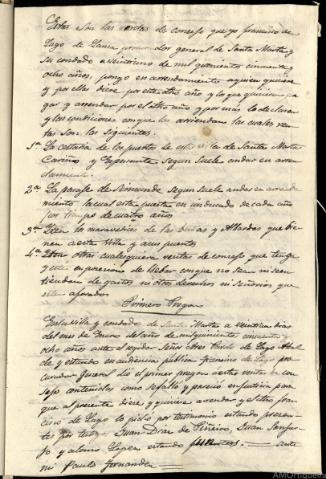 Estas son las rentas de concejo que yo francisco de
Lago de Lanza procurador general de Santa Marta y
su condado a veintiuno de mil quinientos cincuenta y
ocho años, pongo en arrendamiento a quien quiera
y por ellas diere por este otro año y lo que quisiere pa
gar y arrendar por el otro año y por mas le declara
y los condiciones con que las arriendan las cuales ren
tas son las siguientes.
1ª La cestaria de los puertos de esta villa de Santa Marta
Cariño y Espasante segun suele andar en arren
damiento.
2ª La paraje de Simunde segun suele andar en arrenda
miento la cual esta puesta en un ducado de cada año
por tiempo de cuatro años
3ª Iten los maravedises de las y Alzadas que vie
nen a esta Villa y a sus puertos
4ª Iten otras cualesquiera rentas de concejo que tenga
y este en posesion de llevar con que no sean ni se en
tiendan de gastos ni otros derechos ni Señorios que
este aforados
Primero Pregon
En la villa y condado de Santa Marta a veintiun dias
del mes de Enero del año de mil quinientos cincuenta y
ocho años ante el Señor Ares Pardo de Lago Alcal
de y estando en audiencia publica francisco de Lago pro
curador General dio el primer pregon a estas rentas de con
cejo contenidos como se fallo y parecio en justicia por
que al presente diere y quisiere arrendar y el dito fran
cisco de Lago lo pidio por testimonio estando presen
tes por testigos Juan Diaz de Piñeiro, Juan
y alonso Lopez estando juntos. ante
mi Paulo Fernandez